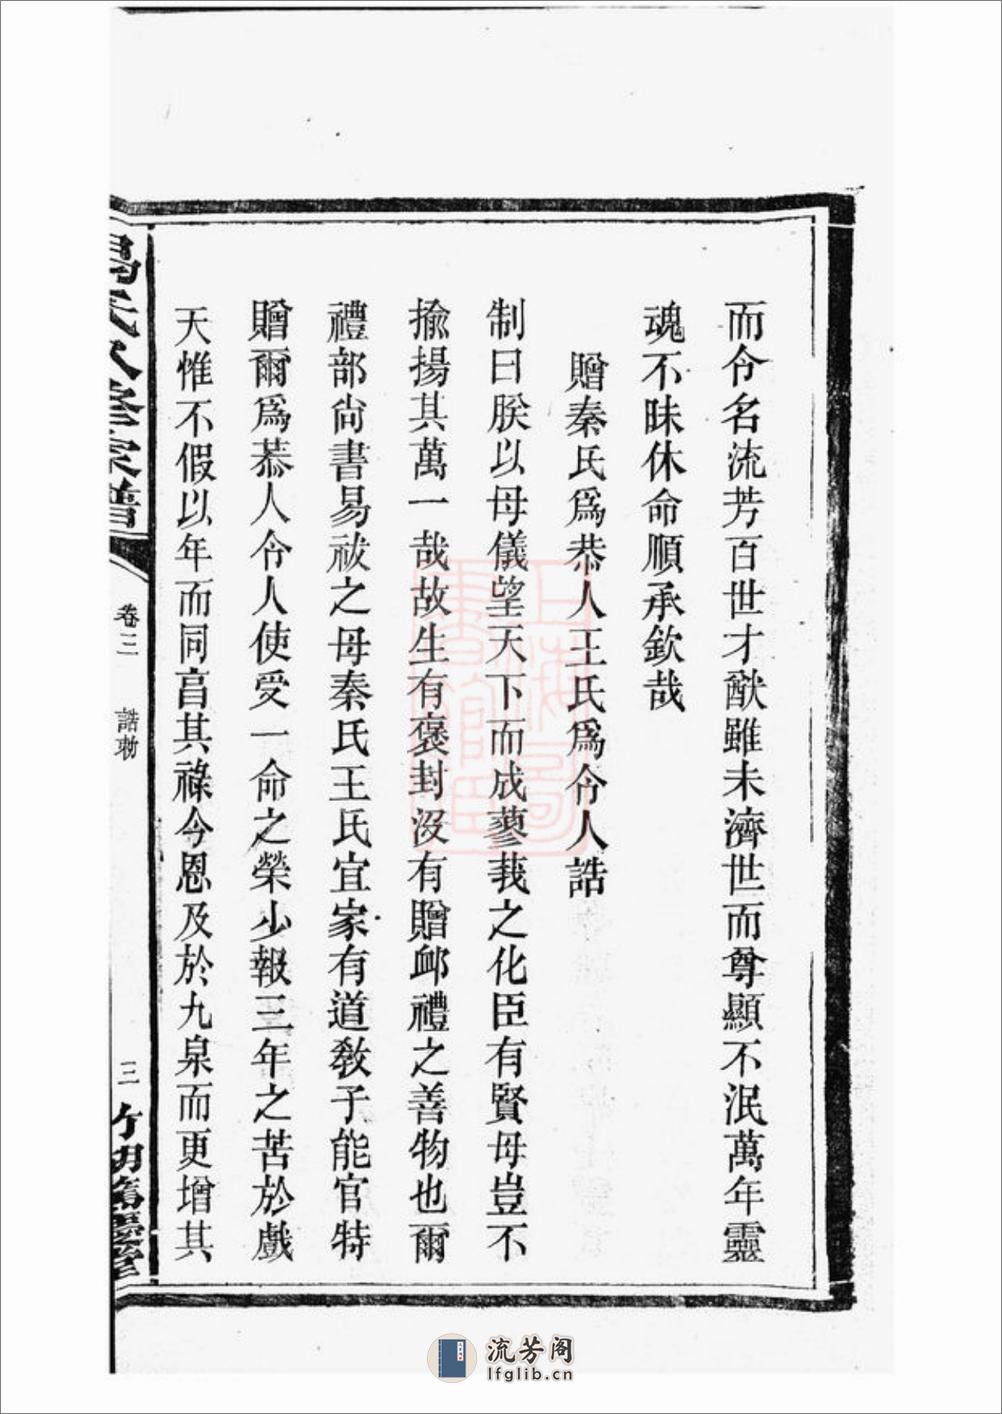 而令名流芳百世才猷雖未濟世而尊顯不泯萬年靈
魂不昧休命順承欽哉
贈秦氏爲恭人王氏爲令人誥
制曰朕以母儀望天下而成蓼莪之化臣有賢母豈不
揄揚其萬一哉故生有褒封沒有贈䘏禮之善物也爾
禮部尚書易祓之母秦氏王氏宜家有道敎子能官特
贈爾爲恭人令人使受一命之榮少報三年之苦於戲
天惟不假以年而同亯其祿今恩及於九泉而更增其
易氏八修宗譜
卷三
誥勅
三
上海圖書館藏
流芳阁
lfglib.cn